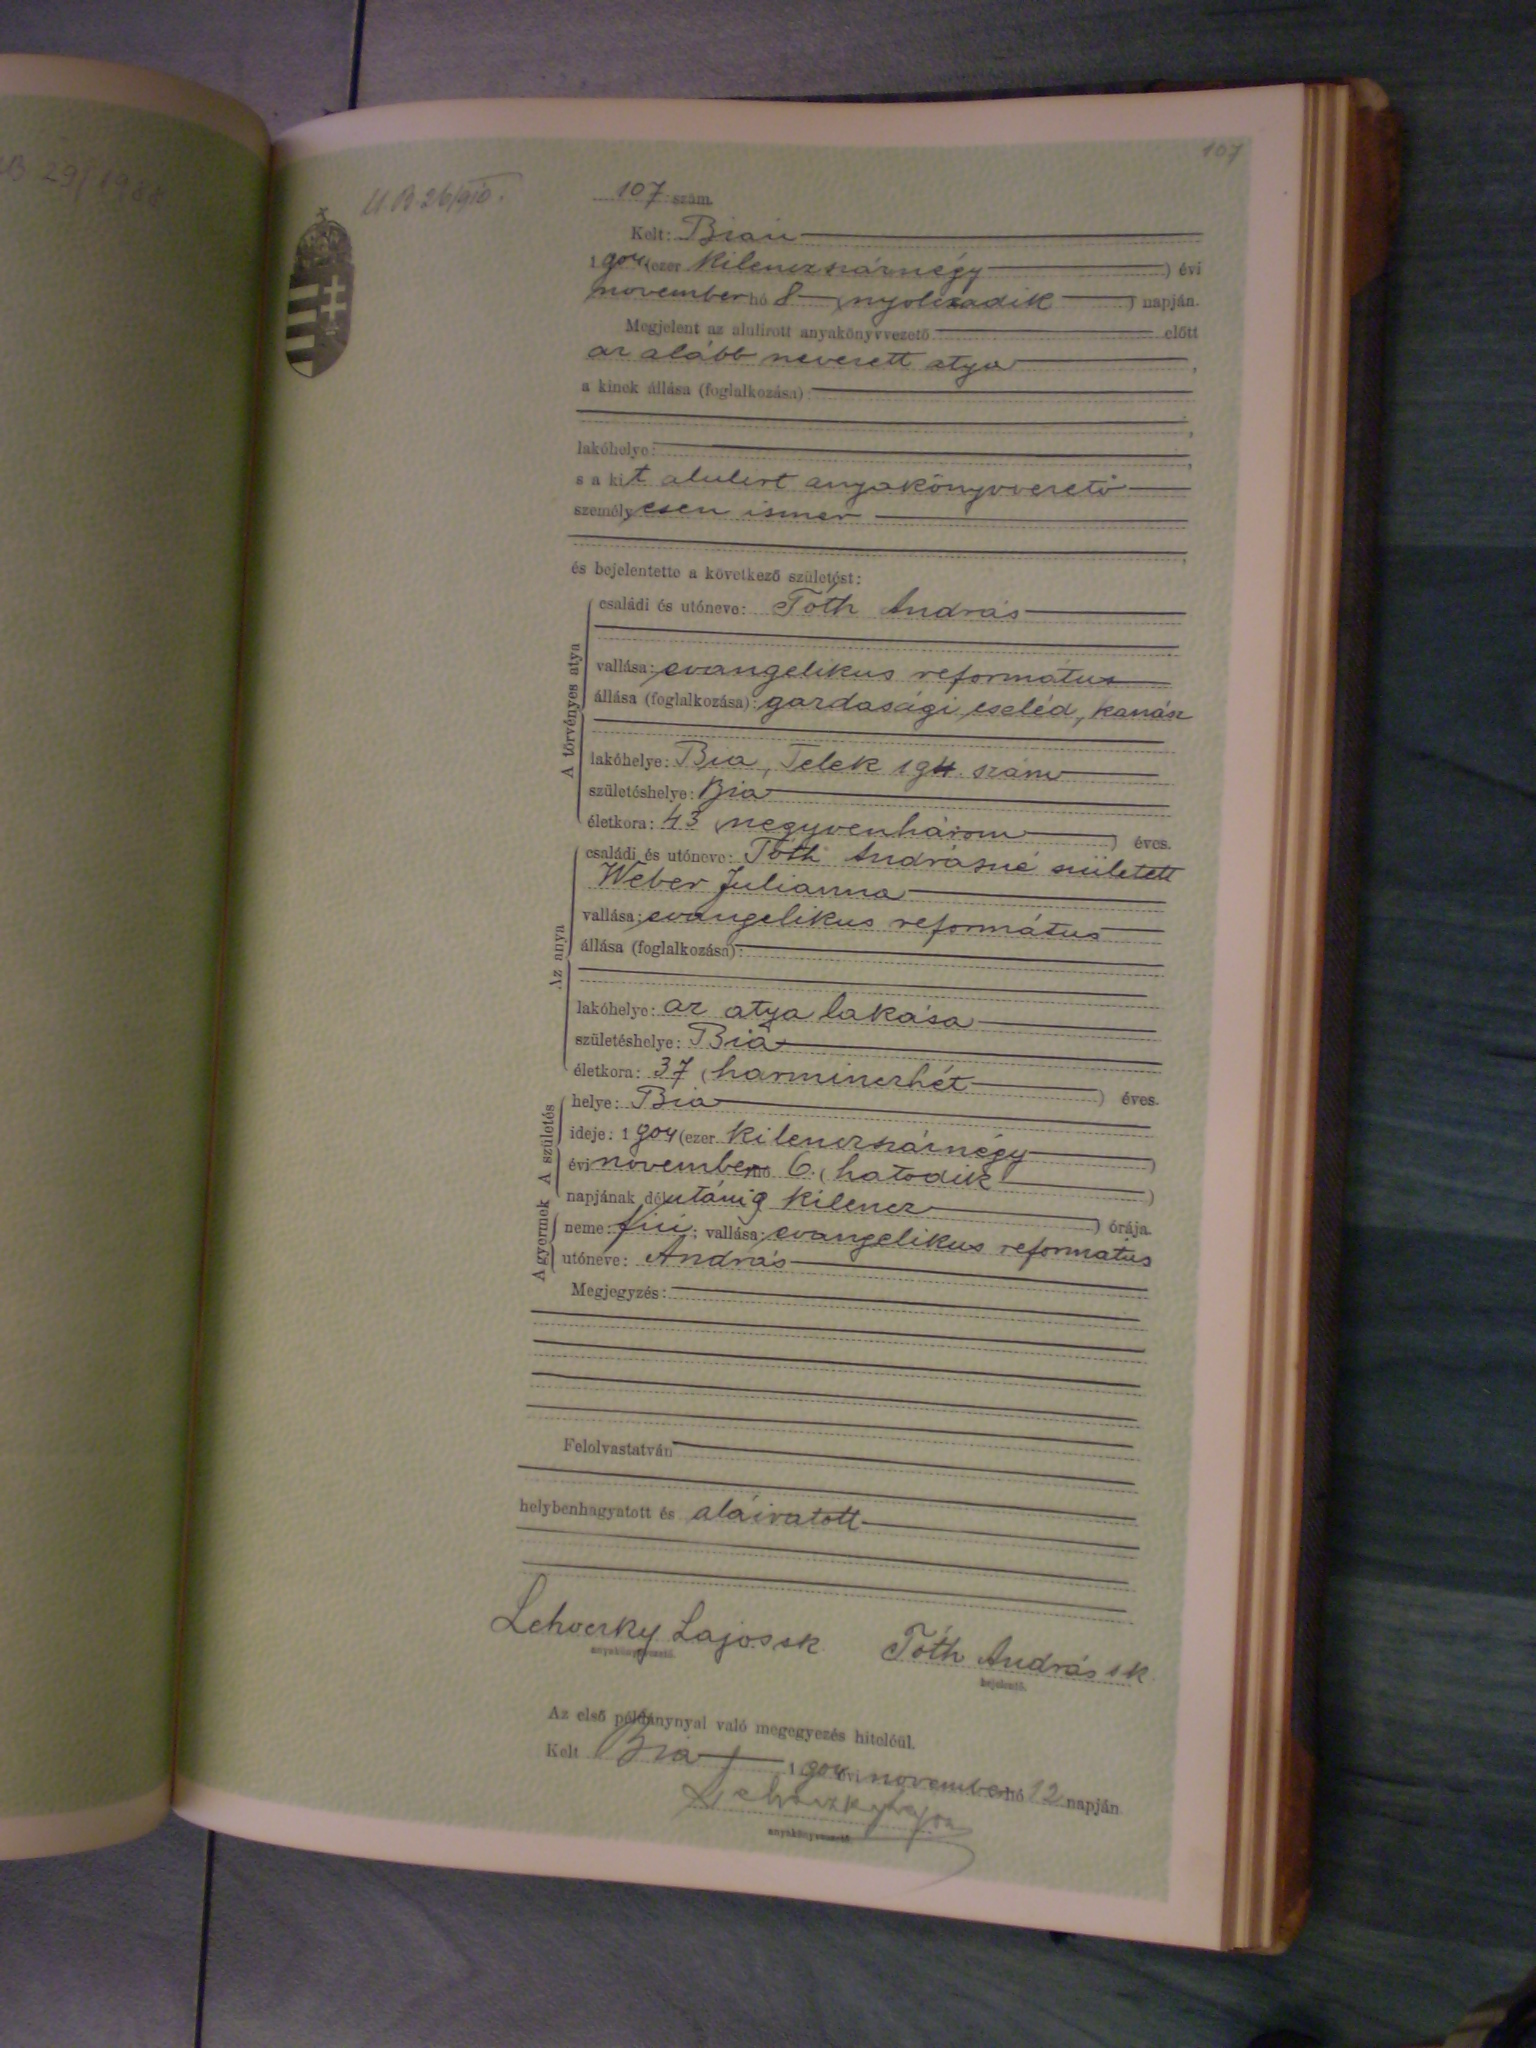 107
107 szám.
Kelt: Bián
1904 (ezer kilenczszáznégy ) évi
november hó 8 (nyolczadik ) napján.
Megjelent az alulirott anyakönyvvezető előtt
az alább nevezett atya ,
a kinek állása (foglalkozása) :
lakóhelye:
s a kit alulirt anyakönyvvezető
személyesen ismer
és bejelentette a következő születést:
A törvényes atya
családi és utóneve: Tóth András
vallása: evangelikus református
állása (foglalkozása): gazdasági cseléd, kanász
lakóhelye: Bia, Telek 194. szám
születéshelye: Bia
életkora: 43 (negyvenhárom ) éves.
Az anya
családi és utóneve: Tóth Andrásné született
Weber Julianna
vallása: evangelikus református
állása (foglalkozása):
lakóhelye: az atya lakása
születéshelye: Bia
életkora: 37 (harminczhét ) éves.
A születés
helye: Bia
ideje: 1904 (ezer kilenczszáznégy )
évi november hó 6. (hatodik )
napjának délutáni 9 kilencz ) órája.
A gyermek
neme: fiú; vallása: evangelikus református
utóneve: András
Megjegyzés:
Felolvastatván
helybenhagyatott és aláiratott
Lehoczky Lajos sk Tóth András sk
anyakönyvvezető. bejelentő.
Az első példánynyal való megegyezés hiteléül.
Kelt Bia 1904 évi november hó 12 napján
Lehoczky Lajos
anyakönyvvezető